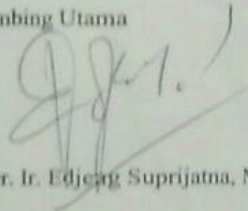 nbing Utama
r. Ir. Edjeng Suprijatna, M